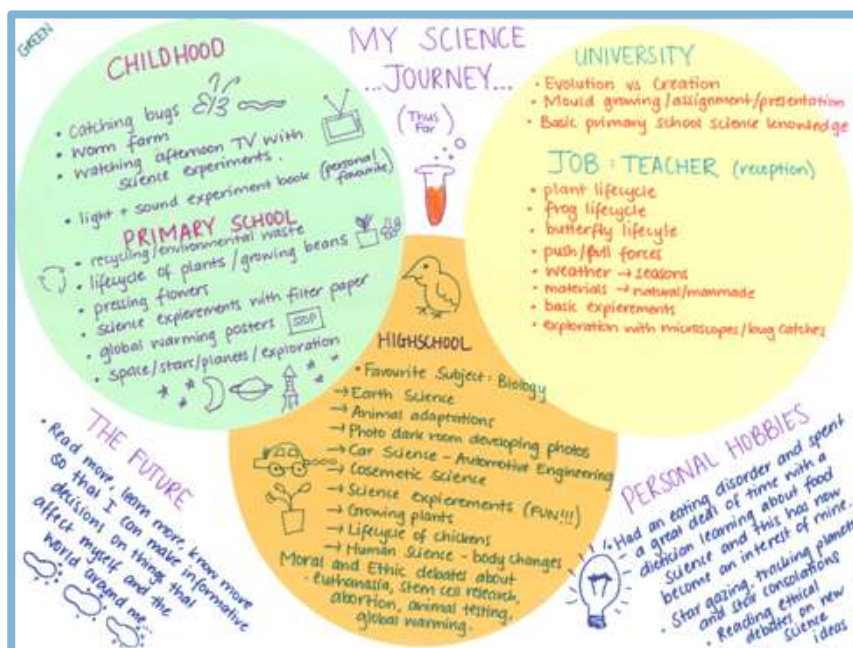 GREEN
MY SCIENCE
...JOURNEY...
(Thus
Far)
CHILDHOOD
• catching bugs
• worm farm
• watching afternoon TV with
science experiments.
• light + sound experiment book (personal
favourite)
PRIMARY SCHOOL
• recycling/environmental waste
• lifecycle of plants/growing beans
• pressing flowers
• science expierements with filter paper
• global warming posters
STOP
• space/stars/planets/exploration
UNIVERSITY
• Evolution vs Creation
• Mould growing/assignment/presentation
• Basic primary school science knowledge
JOB: TEACHER (reception)
• plant lifecycle
• frog lifecycle
• butterfly lifecyle
• push/pull forces
• weather → seasons
• materials → natural/manmade
• basic expierements
• exploration with microscopes/bug catches
HIGHSCHOOL
• Favourite Subject: Biology
→ Earth Science
→ Animal adaptations
→ Photo dark room developing photos
→ Car Science - Automotive Engineering
→ Cosemetic science
→ Science expierements (FUN!!!)
→ Growing plants
→ Lifecycle of chickens
→ Human Science - body changes
Moral and Ethic debates about
- euthanasia, stem cell research,
abortion, animal testing,
global warming.
THE FUTURE
• Read more, learn more, know more
so that I can make informative
decisions on things that
affect myself and the
world around me...
PERSONAL HOBBIES
• Had an eating disorder and spent
a great deal of time with a
dietician learning about food
science and this has now
become an interest of mine.
• Star gazing, tracking planets
and star consolations
• Reading ethical
debates on new
science
ideas